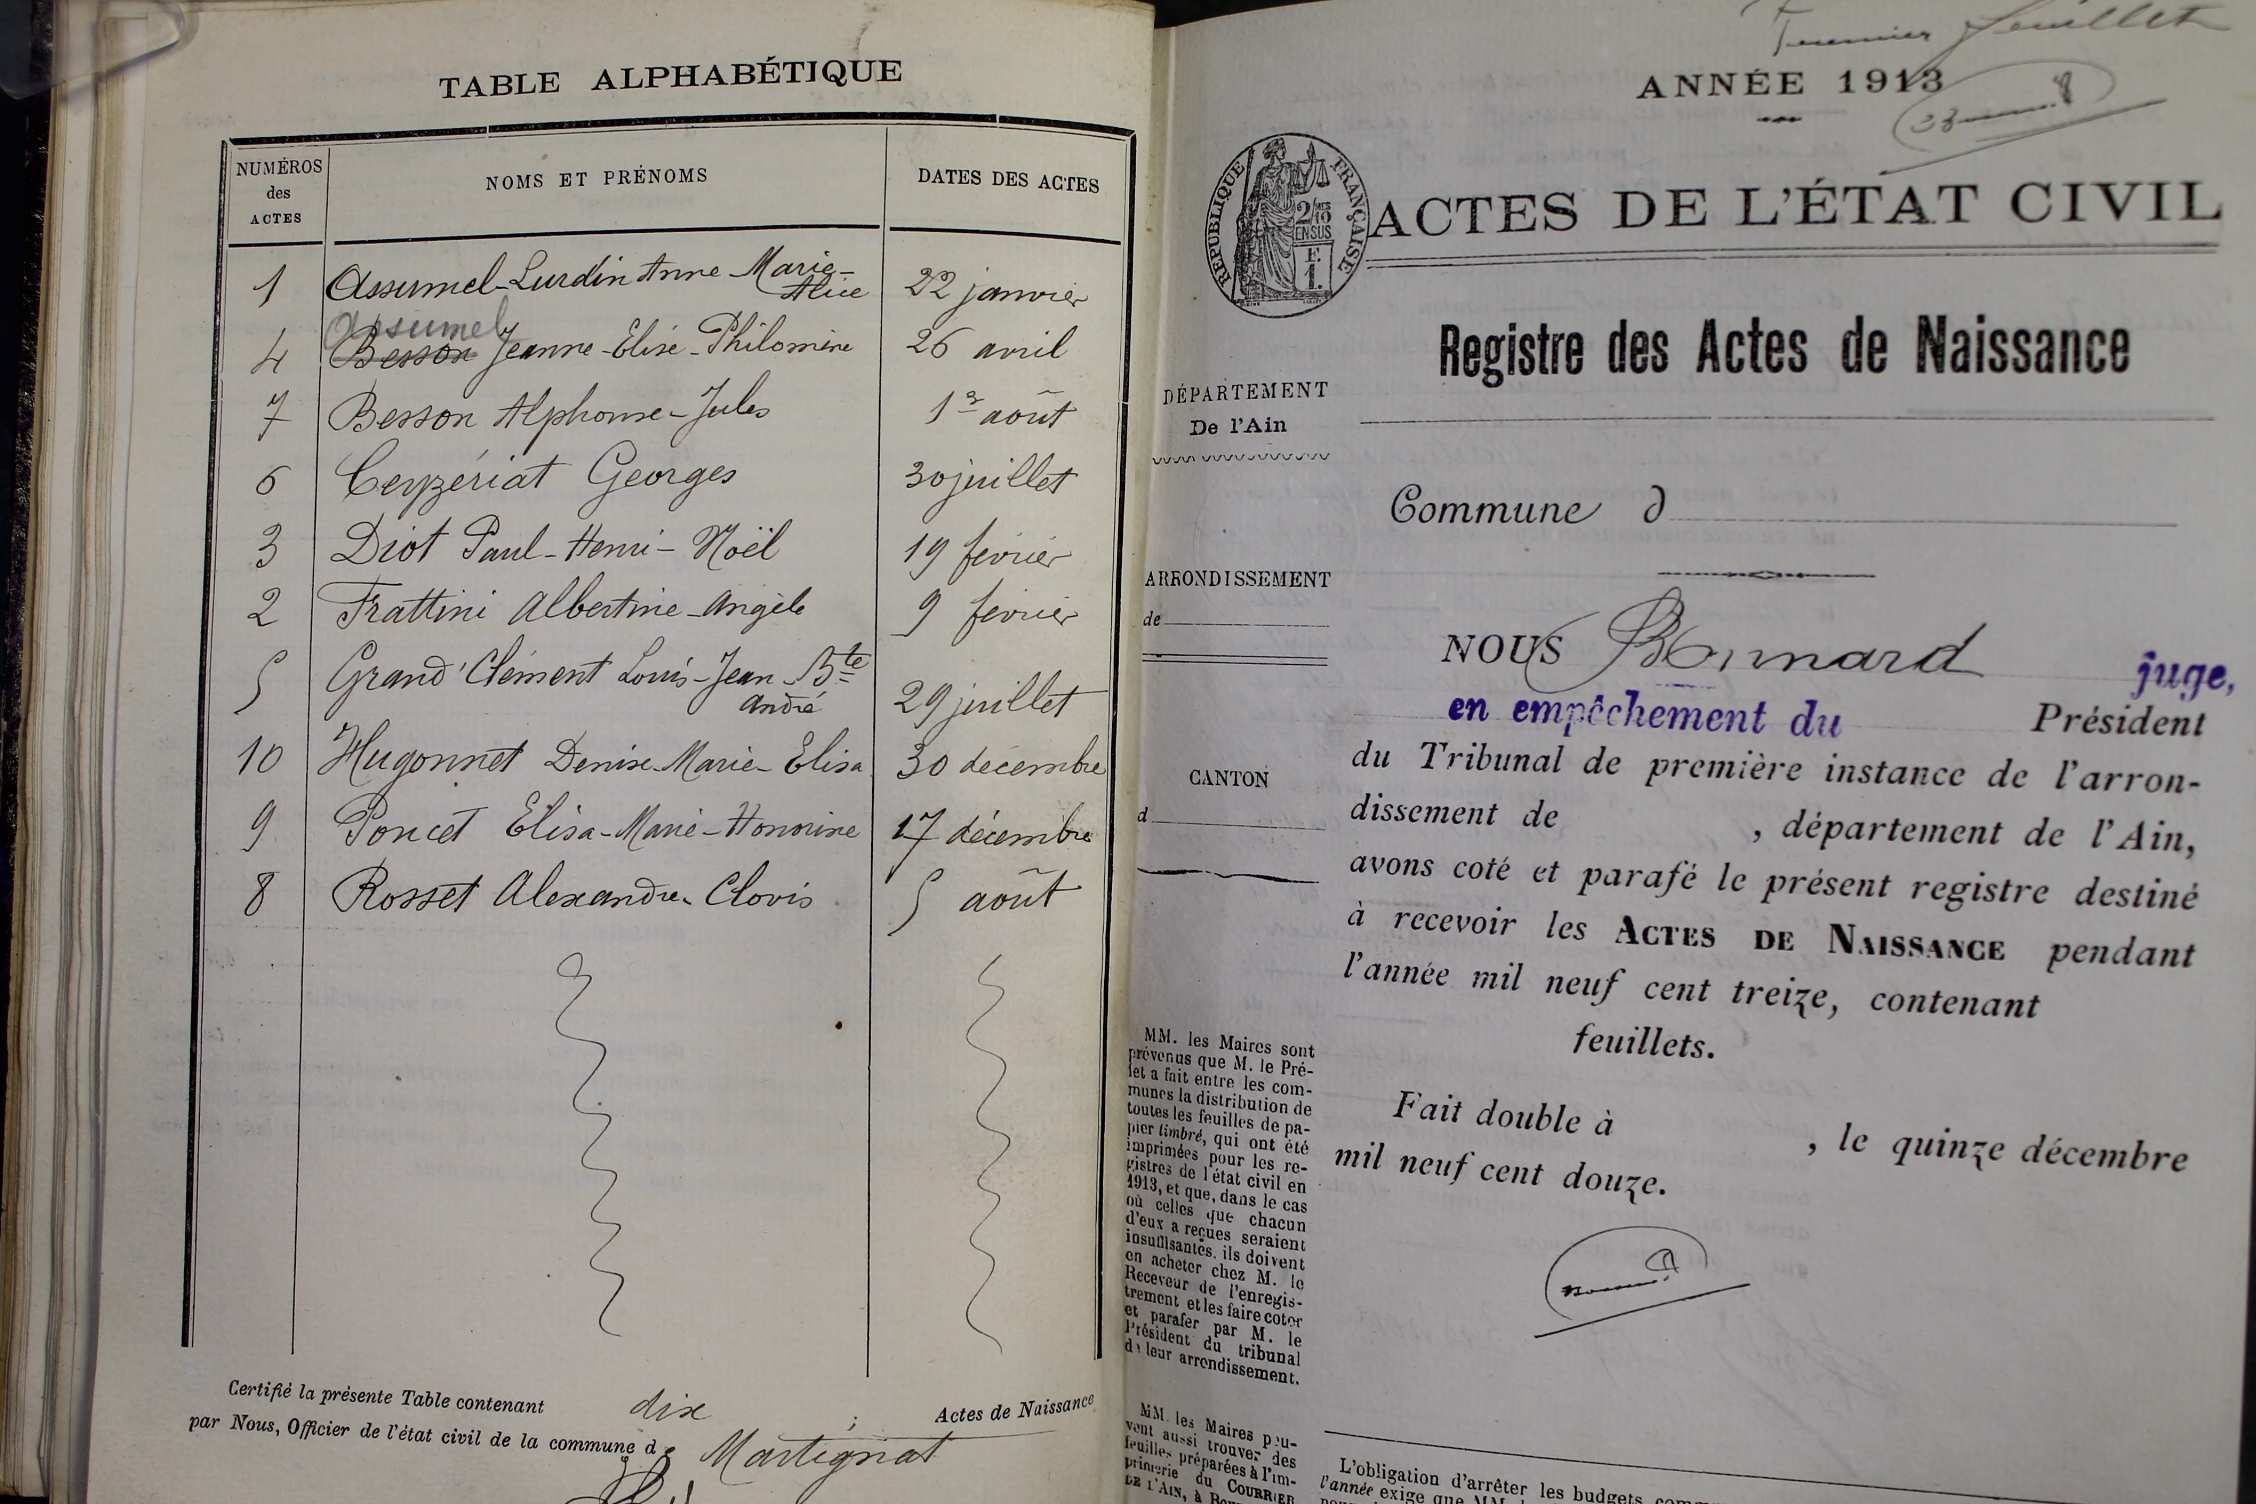 TABLE ALPHABÉTIQUE
NUMÉROS
des
ACTES
NOMS ET PRÉNOMS
DATES DES ACTES
1 Assumel-Lurdin Anne Marie-
Alice 22 janvier
Assumel
4 Besson Jeanne-Elise-Philomène 26 avril
7 Besson Alphonse-Jules 1er août
6 Ceyzériat Georges 30 juillet
3 Diot Paul-Henri-Noël 19 février
2 Frattini Albertine-Angèle 9 février
5 Grand'Clément Louis-Jean-Bte
André 29 juillet
10 Hugonnet Denise-Marie-Elisa 30 décembre
9 Poncet Elisa-Marie-Honorine 17 décembre
8 Rosset Alexandre-Clovis 5 août
Certifié la présente Table contenant dix Actes de Naissance
par Nous, Officier de l'état civil de la commune de Martignat
Premier feuillet
ANNÉE 1913
RÉPUBLIQUE FRANÇAISE
2/10
EN SUS
F.
1.
ACTES DE L'ÉTAT CIVIL
Registre des Actes de Naissance
DÉPARTEMENT
De l'Ain
Commune d
ARRONDISSEMENT
de
CANTON
d
NOUS Bonnard juge,
en empêchement du Président
du Tribunal de première instance de l'arron-
dissement de , département de l'Ain,
avons coté et parafé le présent registre destiné
à recevoir les ACTES DE NAISSANCE pendant
l'année mil neuf cent treize, contenant
feuillets.
Fait double à , le quinze décembre
mil neuf cent douze.
MM. les Maires sont
prévenus que M. le Pré-
fet a fait entre les com-
munes la distribution de
toutes les feuilles de pa-
pier timbré, qui ont été
imprimées pour les re-
gistres de l'état civil en
1913, et que, dans le cas
où celles que chacun
d'eux a reçues seraient
insuffisantes, ils doivent
en acheter chez M. le
Receveur de l'enregis-
trement et les faire coter
et parafer par M. le
Président du tribunal
de leur arrondissement.
MM. les Maires peu-
vent aussi trouver des
feuilles préparées à l'im-
primerie du COURRIER
DE L'AIN, à
L'obligation d'arrêter les budgets
l'année exige que MM.